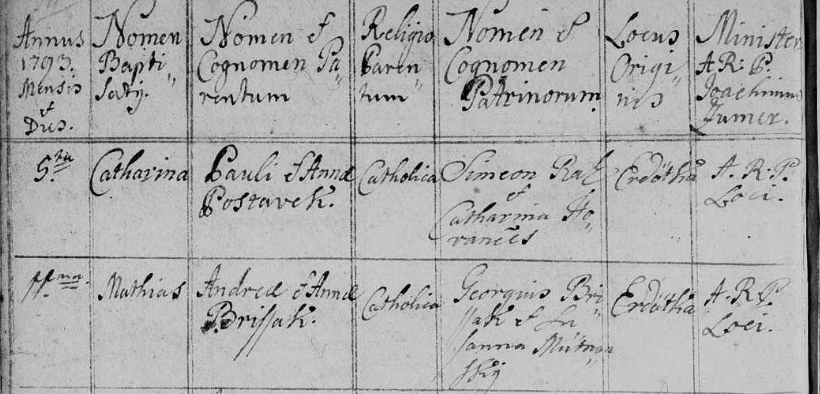 Annus
1793.
Mensis
et
Dies.
Nomen
Bapti"
satj.
Nomen &
Cognomen Pa"
rentum
Religio
Paren"
tum
Nomen &
Cognomen
Patrinorum
Locus
Origi"
nis
Minister
A: R: P.
Joachimus
5.ta
Catharina
Pauli & Annæ
Postavek.
Catholica
Simeon
et
Catharina Ho"
Erdötha
A. R. P.
Loci.
11.ma
Mathias
Andreæ & Annæ
Brissak.
Catholica
Georgius Bri"
ssak & Su"
sanna
Erdötha
A. R. P.
Loci.